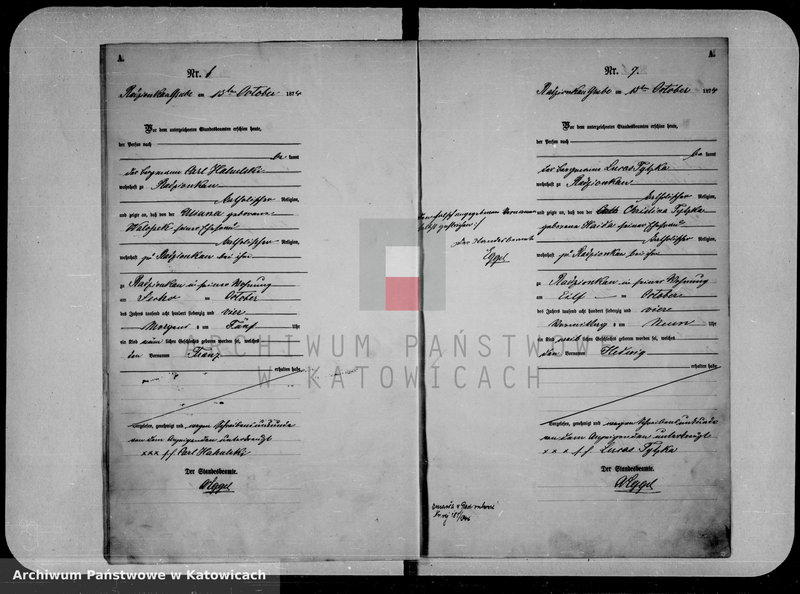 A.
Nr. 6
Radzionkau Grube am 13ten October 1874
Vor dem unterzeichneten Standesbeamten erschien heute,
der Person nach
be kannt
der Bergmann Carl
wohnhaft zu Radzionkau
katholischer Religion,
und zeigte an, daß von der Susana geborene
seiner Ehefrau
katholischer Religion,
wohnhaft zu Radzionkau bei ihm
zu Radzionkau in seiner Wohnung
am Sechs ten October
des Jahres tausend acht hundert siebenzig und vier
Morgens um Fünf Uhr
ein Kind männlichen Geschlechts geboren worden sei, welches
den Vornamen Franz
erhalten habe.
Vorgelesen, genehmigt und wegen Schreibensunkunde
von dem Anzeigenden unterkreuzt
xxx Carl
Der Standesbeamte.
Eggel
A.
Nr. 7.
Radzionkau Grube am 13ten October 1874
Vor dem unterzeichneten Standesbeamten erschien heute,
der Person nach
be kannt
der Bergmann Lucas Tylzka
wohnhaft zu Radzionkau
katholischer Religion,
und zeigte an, daß von der Christina Tylzka
geborene Haida seiner Ehefrau
katholischer Religion,
wohnhaft zu Radzionkau bei ihm
zu Radzionkau in seiner Wohnung
am Elf ten October
des Jahres tausend acht hundert siebenzig und vier
Vormittag um Neun Uhr
ein Kind weiblichen Geschlechts geboren worden sei, welches
den Vornamen Hedwig
erhalten habe.
Vorgelesen, genehmigt und wegen Schreibensunkunde
von dem Anzeigenden unterkreuzt
x x x Lucas Tylzka
Der Standesbeamte.
Eggel
falsch angegebenen Vornamen
gestrichen
Der Standesbeamte
Eggel
ARCHIWUM PAŃSTWOWE
W KATOWICACH
Archiwum Państwowe w Katowicach